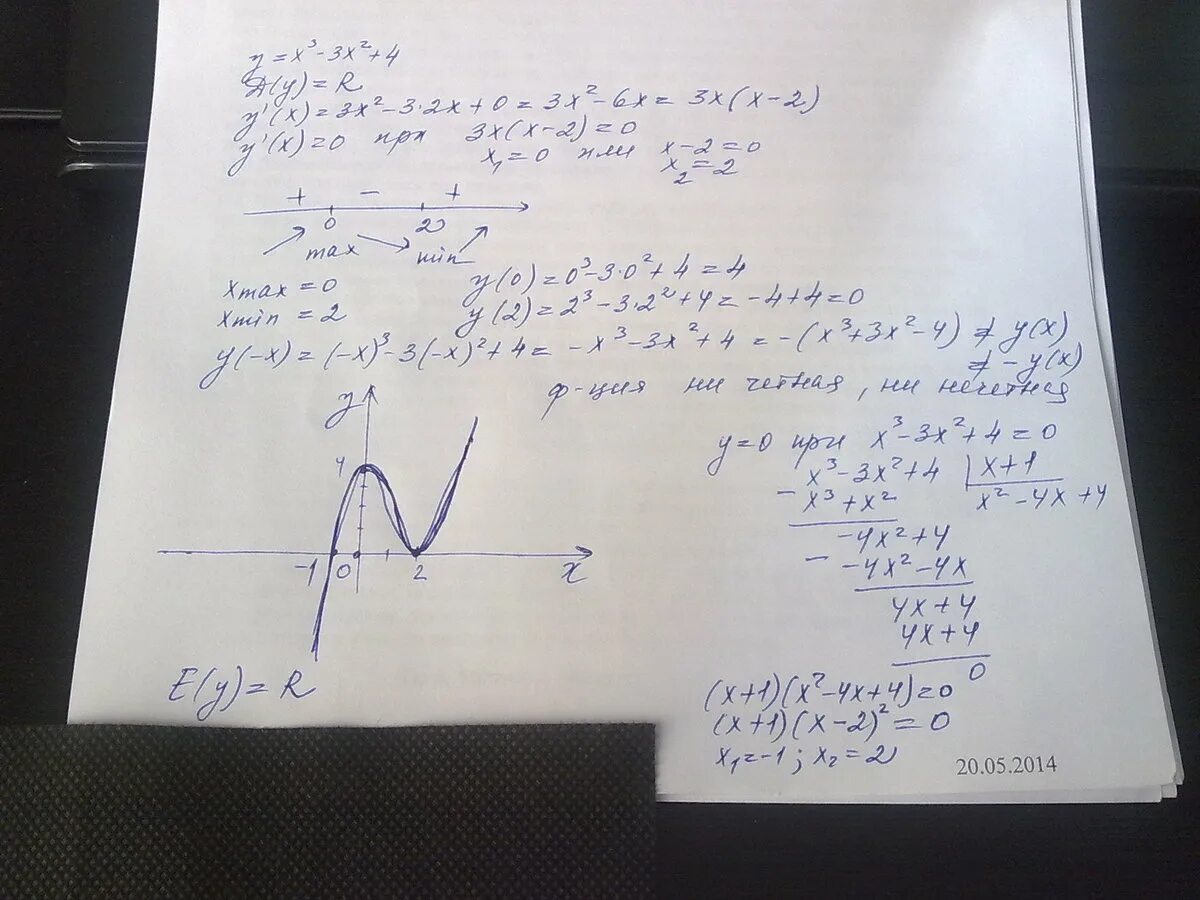 y = x³ - 3x² + 4
D(y) = R
y'(x) = 3x² - 3·2x + 0 = 3x² - 6x = 3x(x-2)
y'(x) = 0 при 3x(x-2) = 0
x₁ = 0 или x-2 = 0
x₂ = 2
+ - +
0 2
max min
xmax = 0 y(0) = 0³ - 3·0² + 4 = 4
xmin = 2 y(2) = 2³ - 3·2² + 4 = -4 + 4 = 0
y(-x) = (-x)³ - 3(-x)² + 4 = -x³ - 3x² + 4 = -(x³ + 3x² - 4) ≠ y(x)
≠ -y(x)
ф-ция ни четная, ни нечетная
y
4
-1 0 2 x
E(y) = R
y = 0 при x³ - 3x² + 4 = 0
x³ - 3x² + 4 | x + 1
- x³ + x² x² - 4x + 4
-4x² + 4
- -4x² - 4x
4x + 4
4x + 4
0
(x+1)(x² - 4x + 4) = 0
(x+1)(x-2)² = 0
x₁ = -1; x₂ = 2
20.05.2014